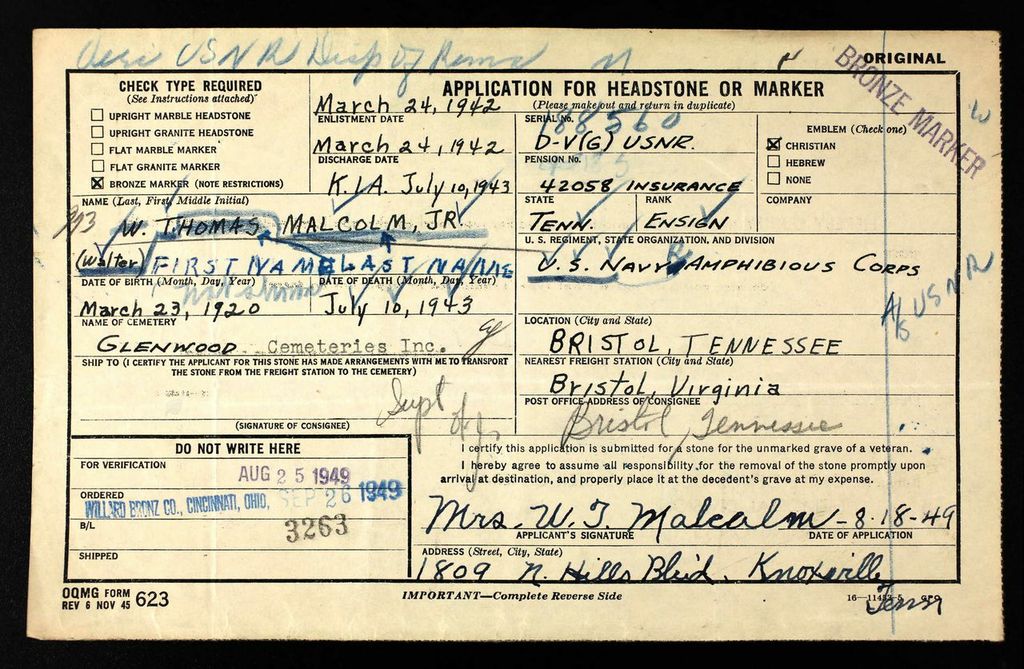 USNR Disp of
ORIGINAL
BRONZE MARKER
CHECK TYPE REQUIRED
(See Instructions attached)
UPRIGHT MARBLE HEADSTONE
UPRIGHT GRANITE HEADSTONE
FLAT MARBLE MARKER
FLAT GRANITE MARKER
BRONZE MARKER (NOTE RESTRICTIONS)
March 24, 1942
ENLISTMENT DATE
March 24, 1942
DISCHARGE DATE
K.I.A. July 10, 1943
APPLICATION FOR HEADSTONE OR MARKER
(Please make out and return in duplicate)
SERIAL No.
188560
D-V(G) USNR.
PENSION No.
42058 INSURANCE
EMBLEM (Check one)
CHRISTIAN
HEBREW
NONE
NAME (Last, First, Middle Initial)
W. THOMAS MALCOLM, JR
(Walter) FIRST NAME LAST NAME
STATE
TENN.
RANK
ENSIGN
COMPANY
U. S. REGIMENT, STATE ORGANIZATION, AND DIVISION
U.S. NAVY AMPHIBIOUS CORPS
USNR
DATE OF BIRTH (Month, Day, Year)
March 23, 1920
DATE OF DEATH (Month, Day, Year)
July 10, 1943
NAME OF CEMETERY
GLENWOOD Cemeteries Inc.
LOCATION (City and State)
BRISTOL, TENNESSEE
SHIP TO (I CERTIFY THE APPLICANT FOR THIS STONE HAS MADE ARRANGEMENTS WITH ME TO TRANSPORT
THE STONE FROM THE FREIGHT STATION TO THE CEMETERY)
NEAREST FREIGHT STATION (City and State)
Bristol, Virginia
POST OFFICE ADDRESS OF CONSIGNEE
Bristol, Tennessee
Supt
(SIGNATURE OF CONSIGNEE)
DO NOT WRITE HERE
FOR VERIFICATION
AUG 25 1949
ORDERED
WILLARD BRONZ CO., CINCINNATI, OHIO, SEP 26 1949
B/L
3263
SHIPPED
I certify this application is submitted for a stone for the unmarked grave of a veteran.
I hereby agree to assume all responsibility for the removal of the stone promptly upon
arrival at destination, and properly place it at the decedent's grave at my expense.
Mrs. W. T. Malcolm - 8-18-49
APPLICANT'S SIGNATURE
DATE OF APPLICATION
ADDRESS (Street, City, State)
1809 N. Hills Blvd. Knoxville
Tenn
OQMG FORM
REV 6 NOV 45 623
IMPORTANT—Complete Reverse Side
GPO